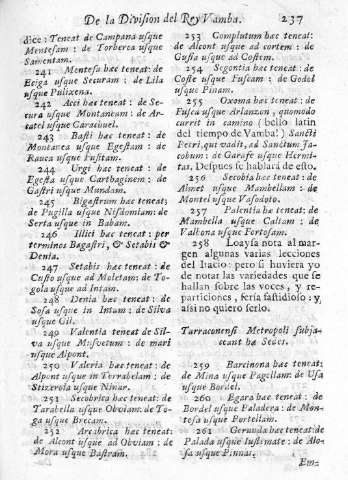 De la Division del Rey Vamba. 237
dice: Teneat de Campana usque
Mentesam : de Torberca usque
Samentam.
241 Mentesa hæc teneat: de
Eciga usque Securam : de Lila
usque Pulixena.
242 Acci hæc teneat : de Se-
cura usque Montaneum : de Ar-
catel usque Carachuel.
243 Basti hæc teneat : de
Montanea usque Egestam : de
Rauca usque Fusitam.
244 Urgi hæc teneat : de
Egesta usque Carthaginem : de
Gastri usque Mundam.
245 Bigastrum hæc teneat:
de Pugilla usque Nisdomiam: de
Serta usque in Babam.
246 Illici hæc teneat : per
terminos Bagastri, & Setabis &
Denia.
247 Setabis hæc teneat : de
Custo usque ad Moletam: de To-
gola usque ad Intam.
248 Denia hæc teneat : de
Sosa usque in Intam : de Silva
usque Gil.
249 Valentia teneat de Sil-
va usque Musvetum : de mari
usque Alpont.
250 Valeria hæc teneat: de
Alpont usque in Terrabelam : de
Stizerola usque Ninar.
251 Secobrica hæc teneat: de
Tarabella usque Obviam: de To-
ga usque Brecam.
252 Arcobrica hæc teneat:
de Alcont usque ad Obviam : de
Mora usque Bastram.
253 Complutum hæc teneat:
de Alcont usque ad cortem : de
Gusia usque ad Costem.
254 Segontia hæc teneat : de
Coste usque Fuscam : de Godel
usque Pinam.
255 Oxoma hæc teneat: de
Fusca usque Arlanzon, quomodo
currit in camino (bello latin
del tiempo de Vamba!) Sancti
Petri, qui vadit, ad Sanctum Ja-
cobum: de Garafe usque Hermi-
tas. Despues se hablarà de esto.
256 Secobia hæc teneat: de
Almet usque Mambellam : de
Montel usque Vasodoto.
257 Palentia hæc teneat: de
Mambella usque Cultam : de
Valbona usque Fortosam.
258 Loaysa nota al mar-
gen algunas varias lecciones
del Itacio: pero si huviera yo
de notar las variedades que se
hallan sobre las voces, y re-
particiones, sería fastidioso: y
assi no quiero serlo.
Tarraconensi Metropoli subja-
ceant hæ Sedes.
259 Barcinona hæc teneat:
de Mina usque Pagellam: de Usa
usque Bordel.
260 Egara hæc teneat: de
Bordel usque Paladera : de Mon-
tesa usque Portellam.
261 Gerunda hæc teneat:de
Palada usque Iustimate: de Alo-
sa usque Pinnas.
Em-